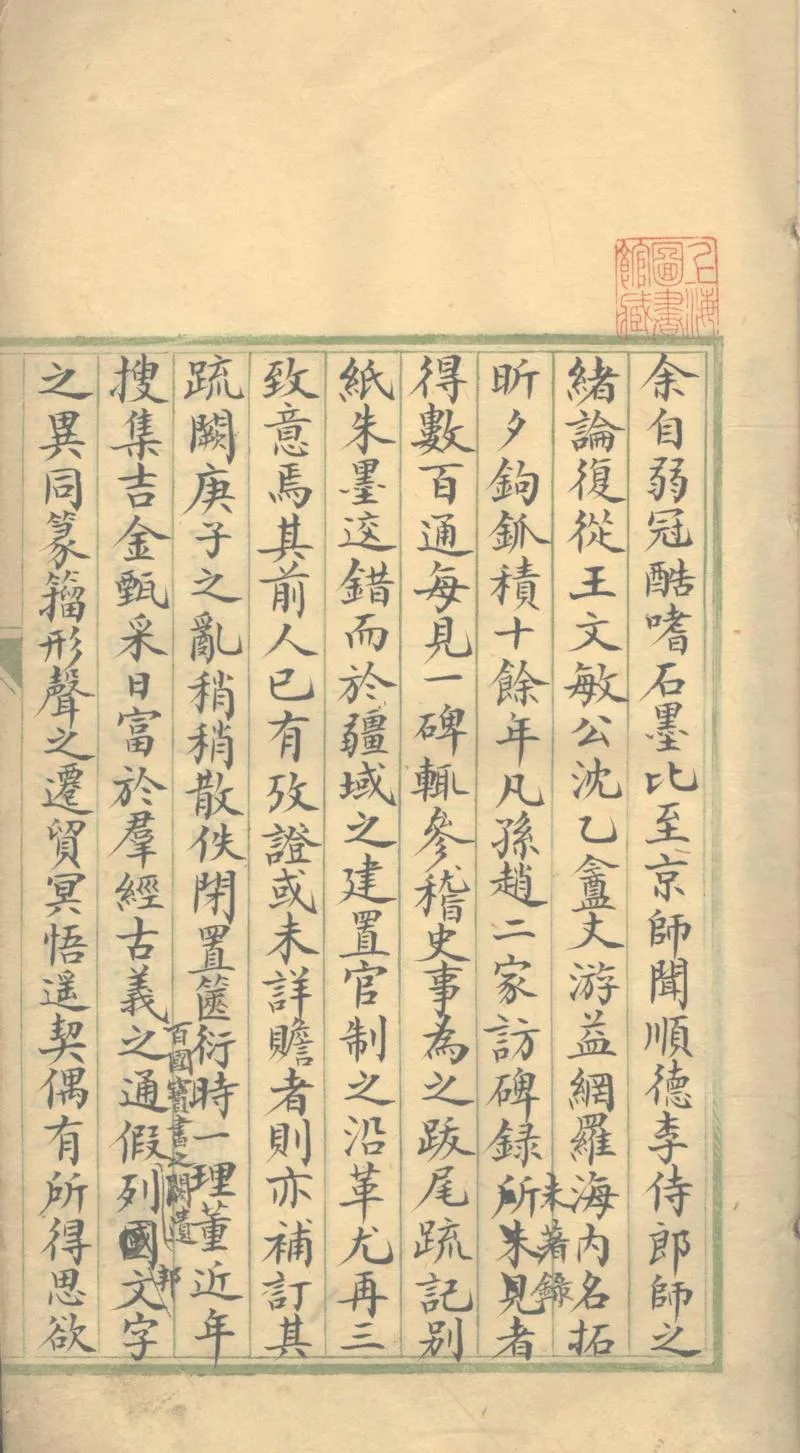 上海圖書館藏
余自弱冠酷嗜石墨比至京師聞順德李侍郎師之
緒論復從王文敏公沈乙盦丈游益網羅海內名拓
未著錄
昕夕鉤釽積十餘年凡孫趙二家訪碑録所未見者
得數百通每見一碑輒參稽史事為之跋尾疏記别
紙朱墨迻錯而於疆域之建置官制之沿革尤再三
致意焉其前人已有攷證或未詳贍者則亦補訂其
疏闕庚子之亂稍稍散佚閉置篋衍時一理董近年
百國寶書之闕遺 邦
搜集吉金甄采日富於羣經古義之通假列國文字
之異同篆籀形聲之遷貿冥悟遥契偶有所得思欲